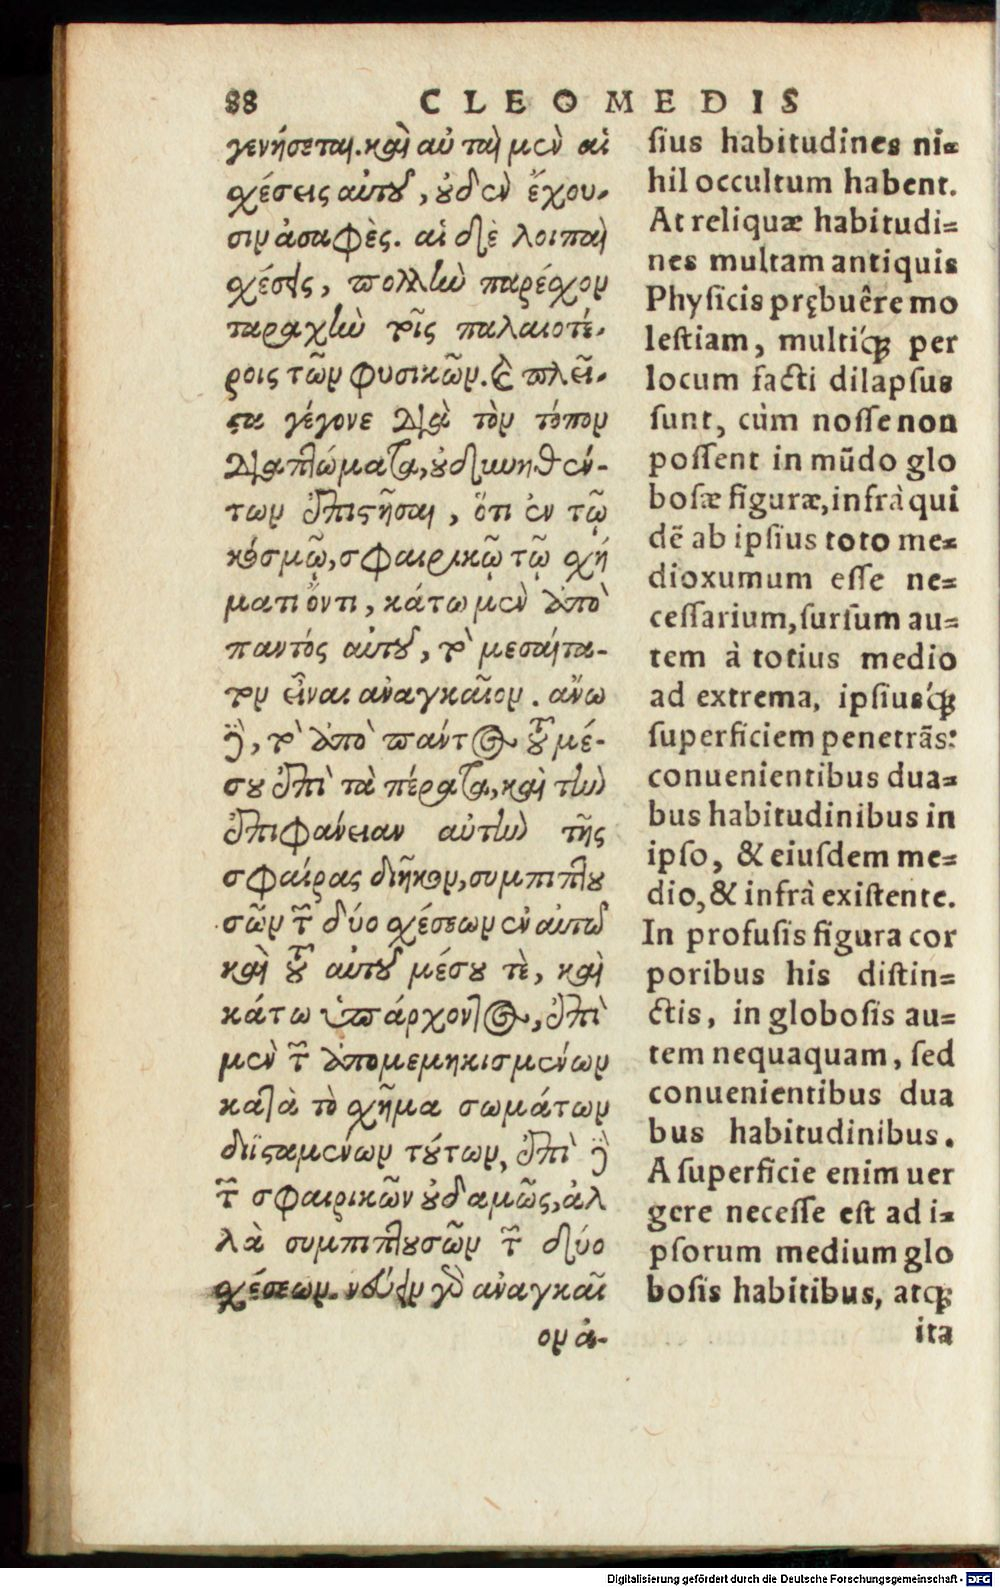 88 CLEOMEDIS
γενήσεται. καὶ αὗται μὲν αἱ
σχέσεις αὐτοῦ, οὐδὲν ἔχου-
σιν ἀσαφές. αἱ δὲ λοιπαὶ
σχέσεις, πολλὴν παρέσχον
ταραχὴν τοῖς παλαιοτέ-
ροις τῶν φυσικῶν. καὶ πλεῖ-
στα γέγονε διὰ τὸν τόπον
διαπτώματα, οὐ δυνηθέν-
των ἐπιστῆσαι, ὅτι ἐν τῷ
κόσμῳ, σφαιρικῷ τῷ σχή
ματι ὄντι, κάτω μὲν ἀπὸ
παντός αὐτοῦ, τὸ μεσαίτα-
τον εἶναι ἀναγκαῖον. ἄνω
δὲ, τὸ ἀπὸ παντὸς τοῦ μέ-
σου ἐπὶ τὰ πέρατα, καὶ τὴν
ἐπιφάνειαν αὐτὴν τῆς
σφαίρας διῆκον, συμπιπτου
σῶν τῶν δύο σχέσεων ἐν αὐτῷ
καὶ τοῦ αὐτοῦ μέσου τὲ, καὶ
κάτω ὑπάρχοντος, ἐπὶ
μὲν τῶν ἀπομεμηκισμένων
κατὰ τὸ σχῆμα σωμάτων
διϊσταμένων τούτων, ἐπὶ δὲ
τῶν σφαιρικῶν οὐδαμῶς, ἀλ
λὰ συμπιπτουσῶν τῶν δύο
σχέσεων. νεύειν γὰρ ἀναγκαῖ
ον ἀ-
sius habitudines ni=
hil occultum habent.
At reliquæ habitudi=
nes multam antiquis
Physicis prębuêre mo
lestiam, multiq́ꝫ per
locum facti dilapsus
sunt, cùm nosse non
possent in mũdo glo
bosæ figuræ, infrà qui
dẽ ab ipsius toto me=
dioxumum esse ne=
cessarium, sursum au=
tem à totius medio
ad extrema, ipsiusq́ꝫ
superficiem penetrãs:
conuenientibus dua=
bus habitudinibus in
ipso, & eiusdem me=
dio, & infrà existente.
In profusis figura cor
poribus his distin=
ctis, in globosis au=
tem nequaquam, sed
conuenientibus dua
bus habitudinibus.
A superficie enim uer
gere necesse est ad i=
psorum medium glo
bosis habitibus, atqꝫ
ita
Digitalisierung gefördert durch die Deutsche Forschungsgemeinschaft - DFG